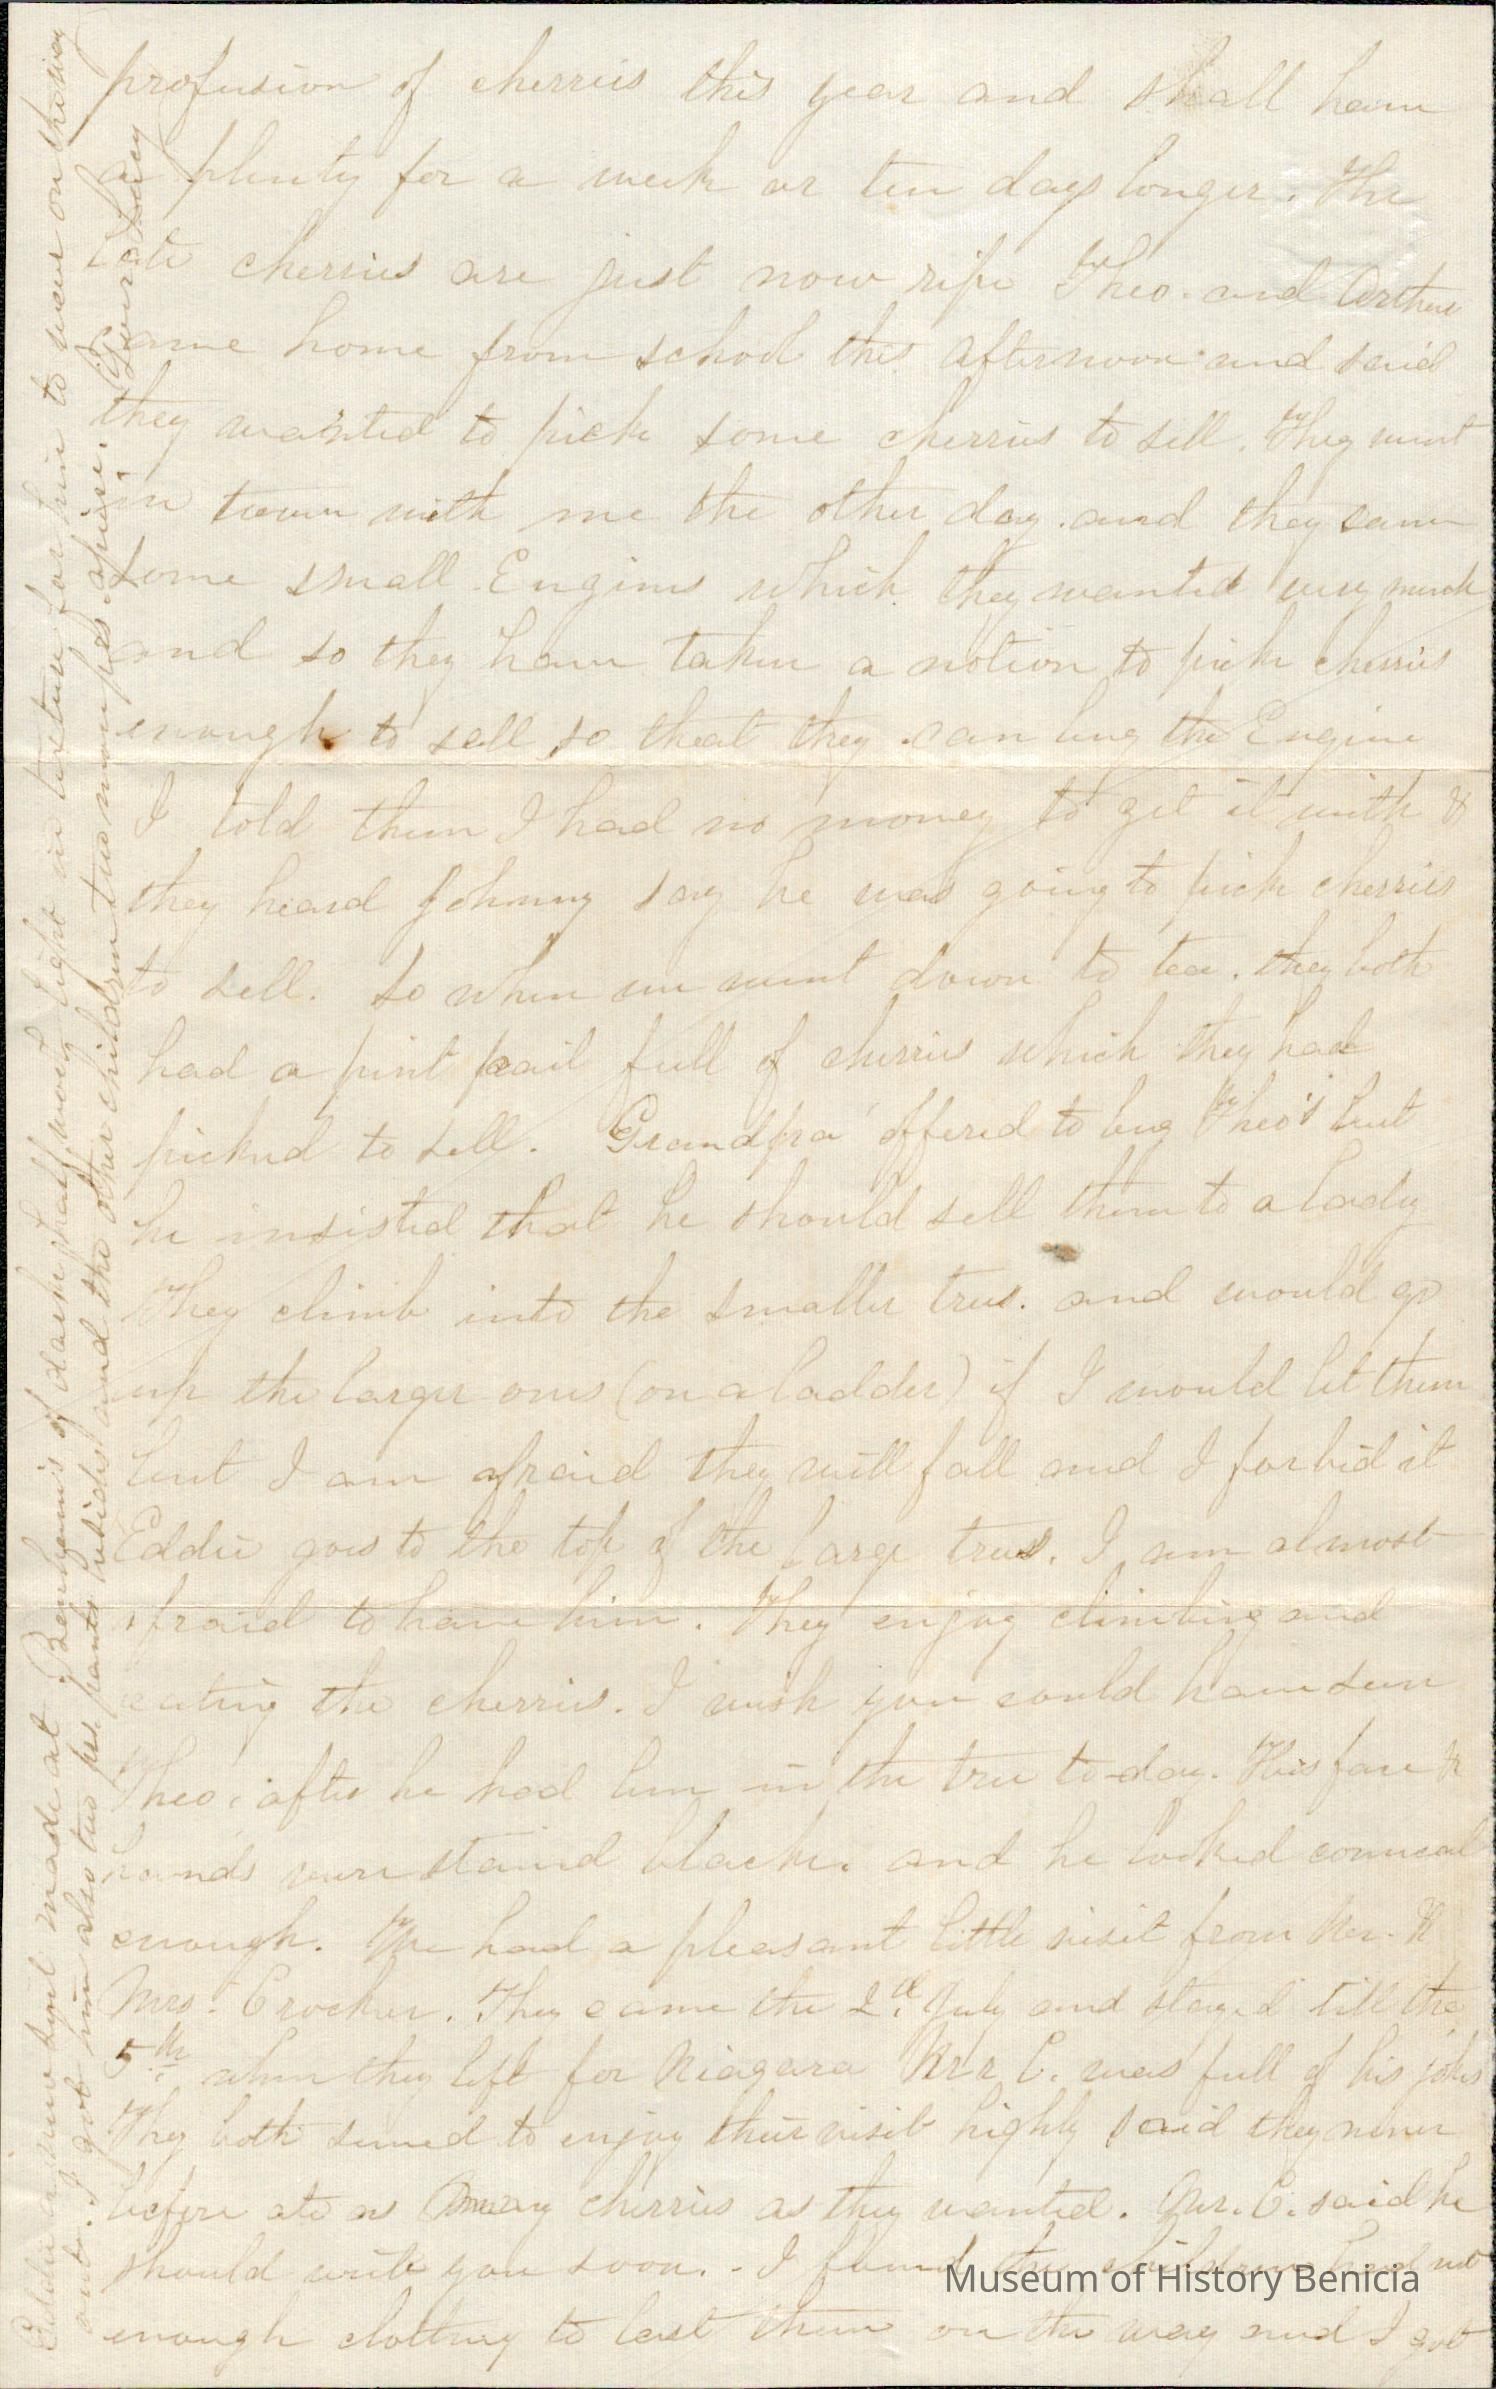 profusion of cherries this year and shall have
a plenty for a week or ten days longer. The
late cherries are just now ripe Theo. and Arthur
came home from school this afternoon and said
they wanted to pick some cherries to sell. They went
in town with me the other day and they saw
some small Engines which they wanted very much
and so they have taken a notion to pick cherries
enough to sell so that they can buy the Engine
I told them I had no money to get it with &
they heard Johnny say he was going to pick cherries
to sell. So when we went down to tea. they both
had a pint pail full of cherries which they had
picked to sell. Grandpa offered to buy Theo's but
he insisted that he should sell them to a lady
They climb into the smaller trees. and would go
up the larger ones (on a ladder) if I would let them
but I am afraid they will fall and I forbid it
Eddie goes to the top of the large trees. I am almost
afraid to have him. They enjoy climbing and
eating the cherries. I wish you could have seen
Theo. after he had been in the tree to-day. His face &
hands were stained black. and he looked comical
enough. We had a pleasant little visit from Mr. &
Mrs. Crocker. They came the 2d. July and stayed till the
5th when they left for Niagara Mr. C. was full of his jokes
They both seemed to enjoy their visit highly said they never
before ate as many cherries as they wanted. Mr. C. said he
should write you soon. - I found the children had not
enough clothing to last them on the way and I got
Eddie a new suit made at Benhams of dark half wooly light in texture for him to wear on the way
out. I got him also two prs. pants besides and the other children two new prs. apiece. Your Lucy
Museum of History Benicia